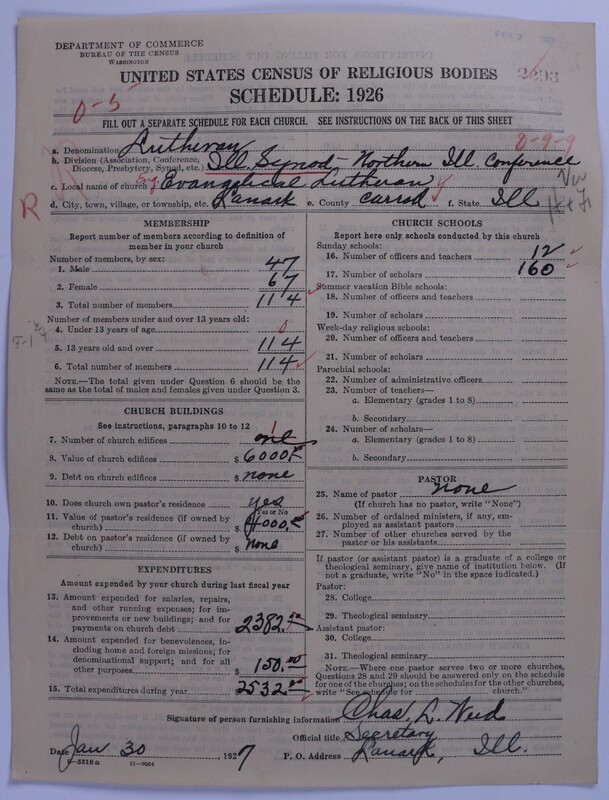 DEPARTMENT OF COMMERCE
BUREAU OF THE CENSUS
WASHINGTON
UNITED STATES CENSUS OF RELIGIOUS BODIES
SCHEDULE: 1926
0-5
FILL OUT A SEPARATE SCHEDULE FOR EACH CHURCH. SEE INSTRUCTIONS ON THE BACK OF THIS SHEET
0-9-9
a. Denomination Lutheran
b. Division (Association, Conference, Diocese, Presbytery, Synod, etc.) Ill. Synod - Northern Ill. Conference
c. Local name of church Evangelical Lutheran
d. City, town, village, or township, etc. Lanark e. County Carroll f. State Ill
R
MEMBERSHIP
Report number of members according to definition of member in your church
Number of members, by sex:
1. Male 47
2. Female 67
3. Total number of members 114
Number of members under and over 13 years old:
4. Under 13 years of age 0
5. 13 years old and over 114
6. Total number of members 114
NOTE.—The total given under Question 6 should be the same as the total of males and females given under Question 3.
CHURCH BUILDINGS
See instructions, paragraphs 10 to 12
7. Number of church edifices one 1
8. Value of church edifices $ 6000
9. Debt on church edifices $ none
10. Does church own pastor's residence yes
Yes or No
11. Value of pastor's residence (if owned by church) $ 4000,
12. Debt on pastor's residence (if owned by church) $ none
EXPENDITURES
Amount expended by your church during last fiscal year
13. Amount expended for salaries, repairs, and other running expenses; for improvements or new buildings; and for payments on church debt $ 2382.00
14. Amount expended for benevolences, including home and foreign missions; for denominational support; and for all other purposes $ 150.00
15. Total expenditures during year $ 2532.00
CHURCH SCHOOLS
Report here only schools conducted by this church
Sunday schools:
16. Number of officers and teachers 12
17. Number of scholars 160
Summer vacation Bible schools:
18. Number of officers and teachers
19. Number of scholars
Week-day religious schools:
20. Number of officers and teachers
21. Number of scholars
Parochial schools:
22. Number of administrative officers
23. Number of teachers—
a. Elementary (grades 1 to 8)
b. Secondary
24. Number of scholars—
a. Elementary (grades 1 to 8)
b. Secondary
PASTOR
25. Name of pastor none
(If church has no pastor, write "None")
26. Number of ordained ministers, if any, employed as assistant pastors
27. Number of other churches served by the pastor or his assistants
If pastor (or assistant pastor) is a graduate of a college or theological seminary, give name of institution below. (If not a graduate, write "No" in the space indicated.)
Pastor:
28. College
29. Theological seminary
Assistant pastor:
30. College
31. Theological seminary
NOTE.—Where one pastor serves two or more churches, Questions 28 and 29 should be answered only on the schedule for one of the churches; on the schedules for the other churches, write "See schedule for church."
Signature of person furnishing information Chas. L. Weed
Official title Secretary
Date Jan 30, 1927 P. O. Address Lanark, Ill.
8-5518a 11-9024